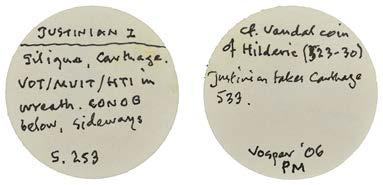 JUSTINIAN I
Siliqua, Carthage.
VOT/MVIT/HTI in
wreath. CONOB
below, sideways
S. 253
cf. Vandal coin
of Hilderic (523-30)
Justinian takes Carthage
533.
Vosper '06
PM